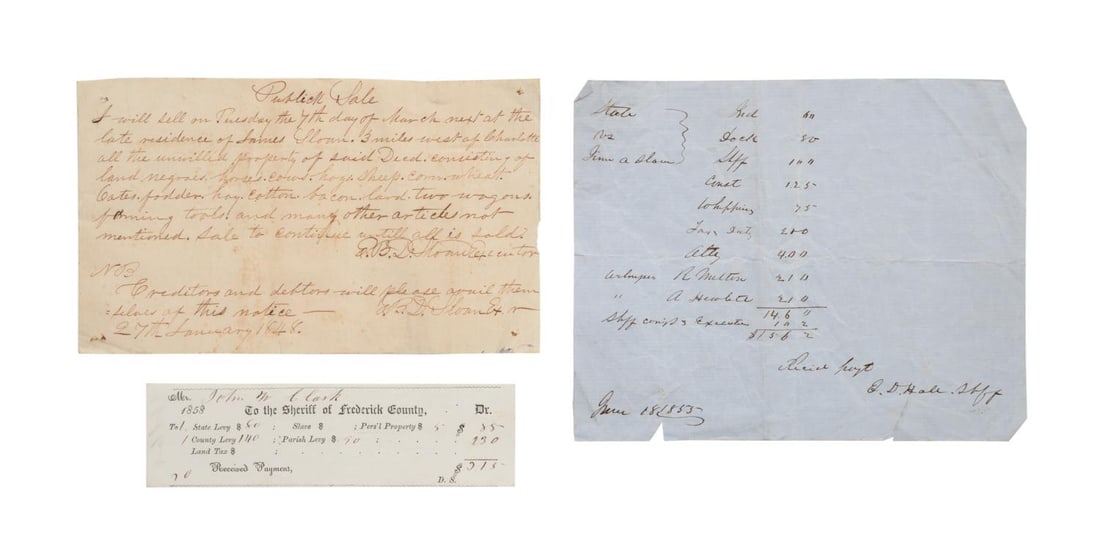 Publick Sale
I will sell on Tuesday the 7th day of March next at the
late residence of James Sloan. 3 miles west of Charlotte
all the unwilled property of said Decd. consisting of
land negroes. horses. cows. hogs. sheep. corn. wheat.
Oates. fodder. hay. cotton. bacon. lard. two wagons.
farming tools. and many other articles not
mentioned. Sale to continue untill all is sold.
B. D. Sloan Executor
NB
Creditors and debtors will please avail them
=selves of this notice —
B. D. Sloan Exr
27th January 1848.
Mr. John W Clark
1858 To the Sheriff of Frederick County, Dr.
To 1, State Levy $ 80 ; Slave $ ; Pers'l Property $ 5 $ 85
1 County Levy 140 ; Parish Levy 90 ; 230
Land Tax $ ;
Received Payment, $ 315
20 D. S.
State
vs
a Slave
60
Dock 80
Shff 100
Const 125
Whipping 75
200
Atty 400
R Melton 210
" A Hewlett 210
14.6 "
Shff 10 2
$15.6 2
E. D. Hall Shff
June 18 1855